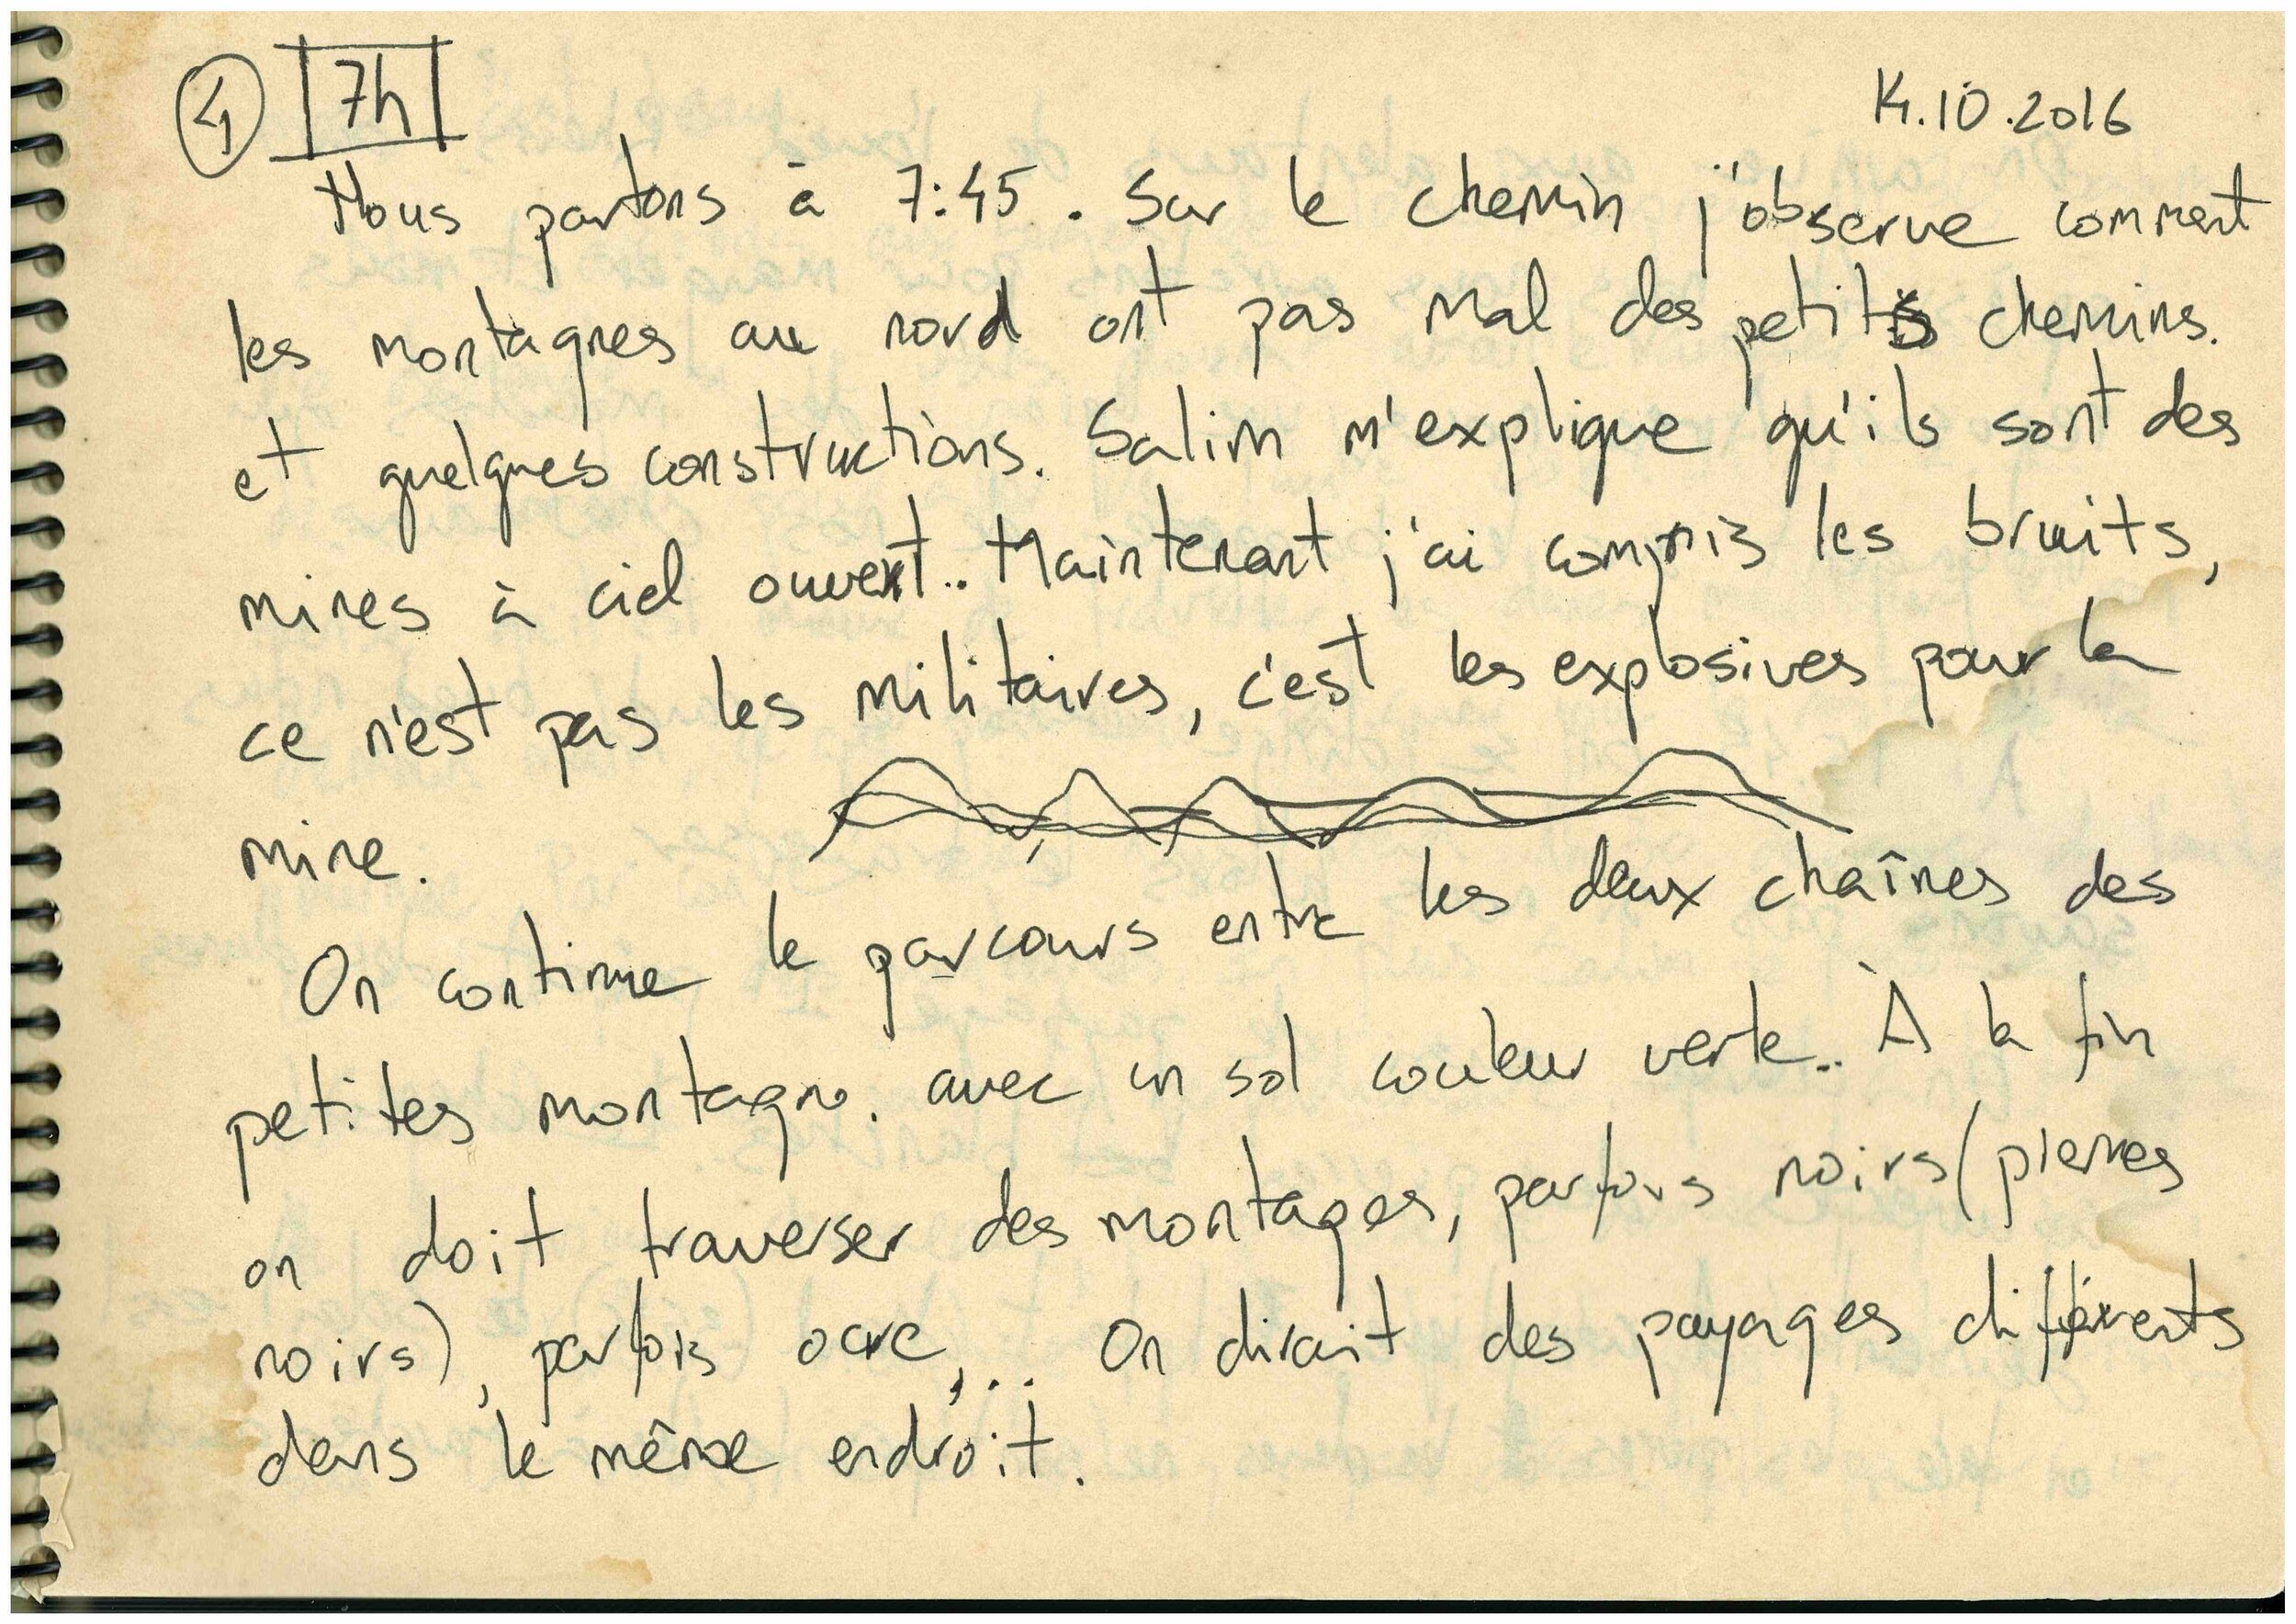 4 7h 14.10.2016
Nous partons à 7:45. Sur le chemin j'observe comment
les montagnes au nord ont pas mal des petits chemins.
et quelques constructions. Salim m'explique qu'ils sont des
mines à ciel ouvert.. Maintenant j'ai compris les bruits,
ce n'est pas les militaires, c'est les explosives pour la
mine.
On continue le parcours entre les deux chaînes des
petites montagne. avec un sol couleur verte.. À la fin
on doit traverser des montages, parfois noirs (pierres
noirs), parfois ocre,... On dirait des payages différents
dans le même endroit.